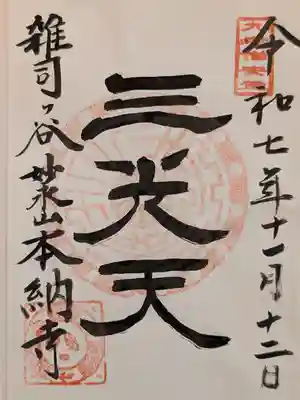 令和七年十一月十二日
三光天
雑司ヶ谷 妙永山本納寺